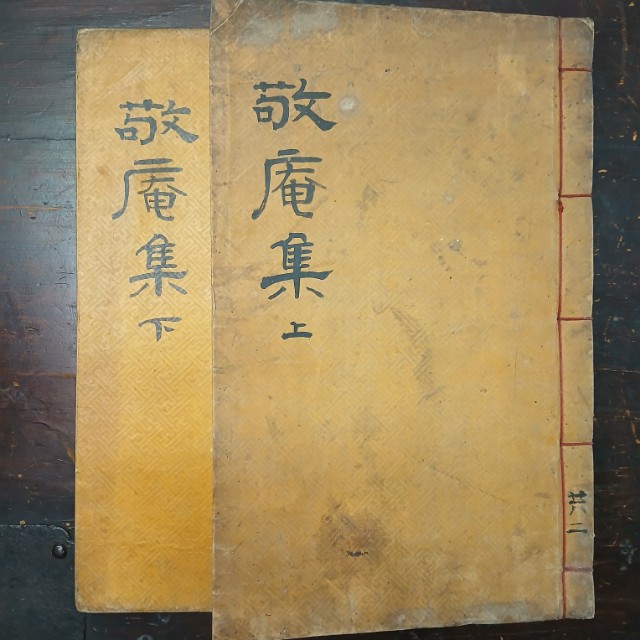 敬庵集上
共二
敬庵集下